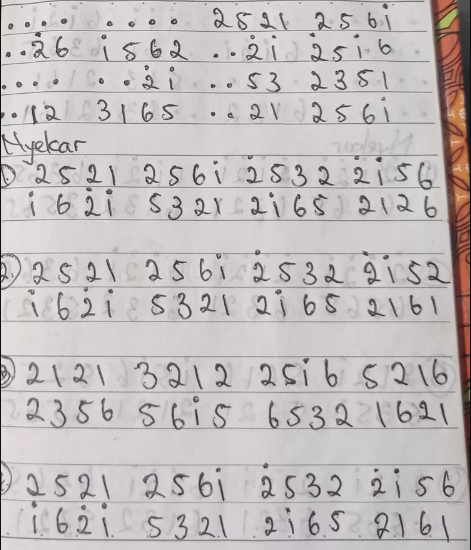 . . . . . . . . 2521 256i̇
. . 2̇6 i̇562 . . 2̇i̇ 2̇5i̇6
. . . . . . 2̇i̇ . . 53 2351
. . 12 3165 . . 21 256i̇
Nyekar
1) 2521 256i̇ 2̇532 2̇i̇56
i̇62̇i̇ 5321 2i̇65 2126
2) 2521 256i̇ 2̇532 2̇i̇52
i̇62̇i̇ 5321 2i̇65 2161
3) 2121 3212 25i̇6 5216
2356 56i̇5 6532 1621
2521 256i̇ 2̇532 2̇i̇56
i̇62̇i̇ 5321 2i̇65 2161